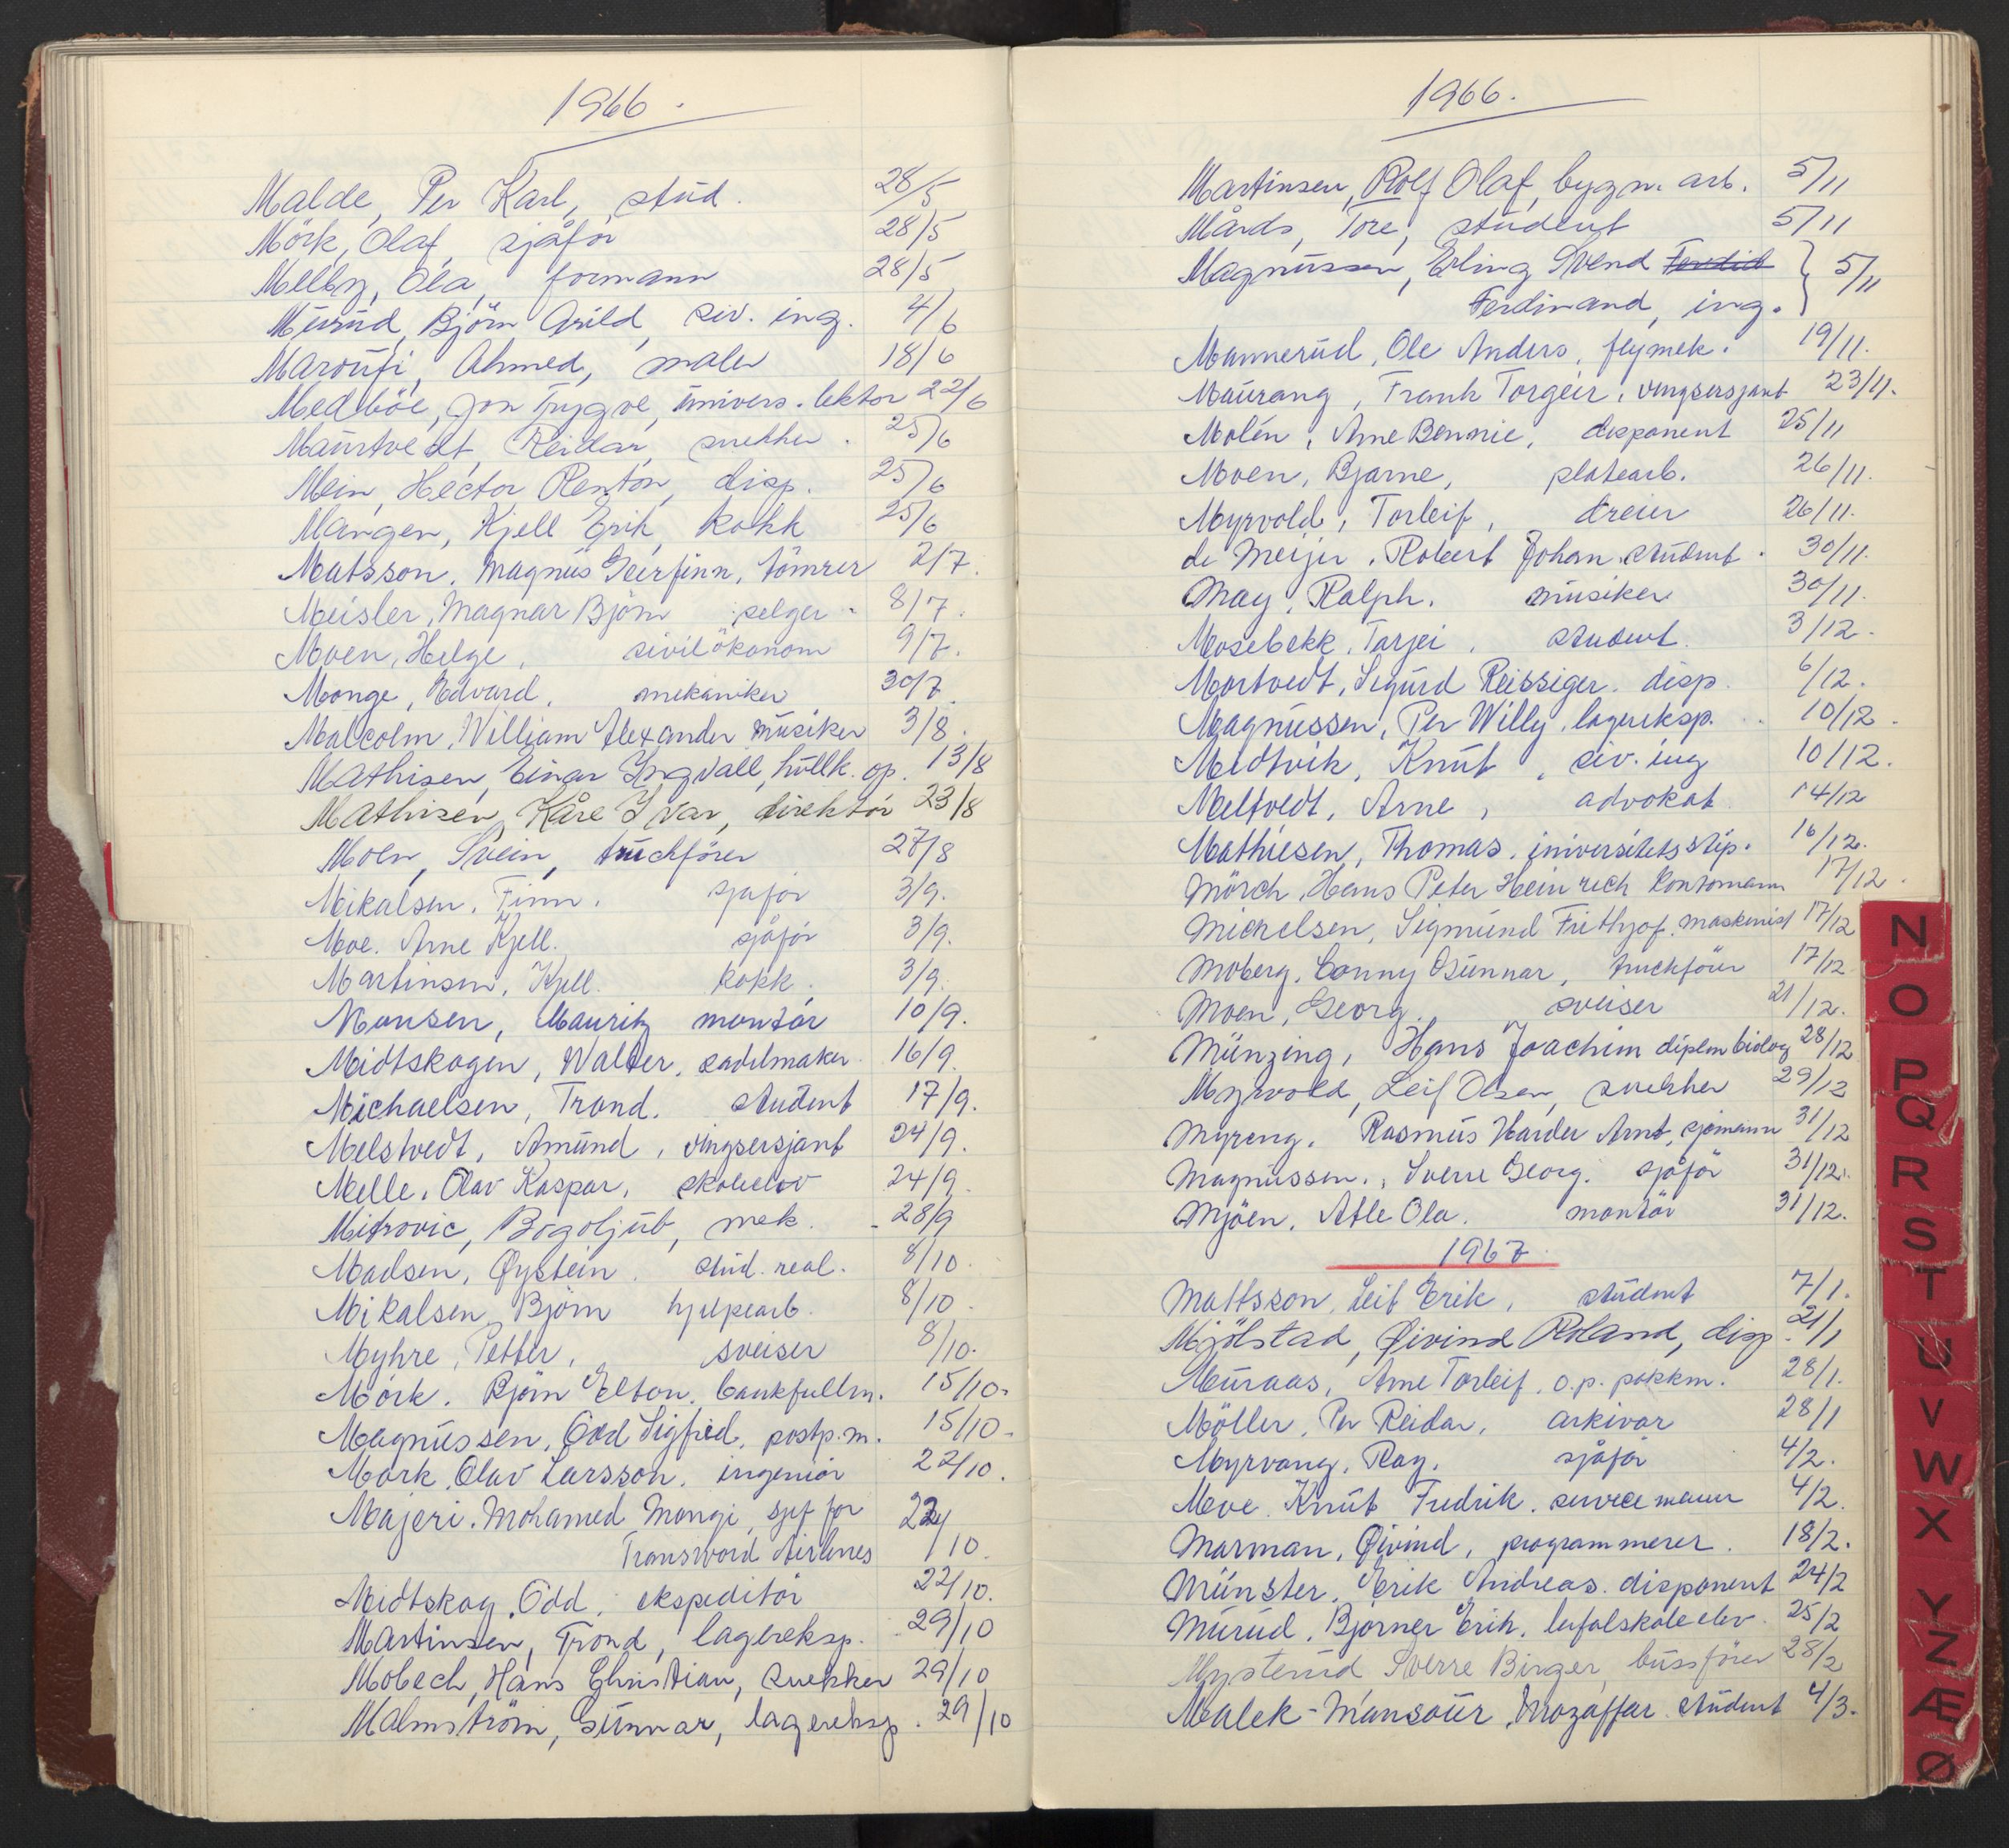 1966.
Malde, Per Karl, stud. 28/5
Mörk, Olaf, sjåför 28/5
Melby, Ola, formann 28/5
Murud, Björn Arild, siv. ing. 4/6
Maroufi, Ahmed, maler 18/6
Medböe, Jon Trygve, univers. lektor 22/6
Maurtvedt, Reidar, snekker. 25/6
Mein, Hector Renton, disp. 25/6
Mangen, Kjell Erik, kokk 25/6
Matsson, Magnus Geirfinn, tömrer 2/7.
Meisler, Magnar Björn selger. 8/7.
Moen, Helge, sivilökonom 9/7.
Monge, Edvard, mekaniker 30/7.
Malcolm, William Alexander musiker 3/8.
Mathisen, Einar Ingvall, hullk. op. 13/8
Mathisen, Kåre Ivar, direktör 23/8
Moen, Svein, truckförer 27/8
Mikalsen, Finn. sjåför 3/9.
Moe. Arne Kjell. sjåför 3/9.
Martinsen, Kjell. kokk. 3/9.
Monsen, Mauritz montör 10/9.
Midtskogen, Walter, sadelmaker. 16/9.
Michaelsen, Trond. student 17/9.
Melstvedt, Amund, vingsersjant 24/9.
Melle, Olav Kaspar, skoleelev 24/9.
Mitrovic, Bogoljub, mek. 28/9
Madsen, Øystein. stud. real. 8/10.
Mikalsen, Björn hjelpearb. 8/10.
Myhre, Petter, sveiser 8/10.
Mörk. Björn Elton. bankfullm. 15/10.
Magnussen, Odd Sigfred, postp.m. 15/10.
Mork, Olav Larsson, ingeniör 22/10.
Majeri. Mohamed Mongi, sjef for 22/10.
Transword Airlines
Midtskog, Odd, ekspeditör 22/10.
Martinsen, Trond, lagereksp. 29/10
Mobech, Hans Christian, snekker 29/10
Malmström, Gunnar, lagereksp. 29/10
1966.
Martinsen, Rolf Olaf, bygn. arb. 5/11
Mårds, Tore, student 5/11
Magnussen, Erling Svend Ferdid } 5/11
Ferdinand, ing.
Mannerud, Ole Anders, flymek. 19/11.
Maurang, Frank Torgeir, vingsersjant 23/11.
Molén, Arne Bennie, disponent 25/11
Moen, Bjarne, platearb. 26/11.
Myrvold, Torleif, dreier 26/11.
de Meijer, Robert Johan. student. 30/11.
May, Ralph. musiker 30/11.
Mosebekk, Tarjei, student. 3/12.
Mortvedt, Sigurd Reissiger. disp. 6/12.
Magnussen, Per Willy, lagereksp. 10/12.
Medtvik, Knut, siv. ing 10/12.
Meltvedt, Arne, advokat 14/12
Mathiesen, Thomas. universitetsstip. 16/12.
Mörch, Hans Peter Heinrech kontormann 17/12.
Michelsen, Sigmund Frithjof. maskinist 17/12
Moberg, Conny Gunnar, truckförer 17/12
Moen, Georg. sveiser 21/12.
Münzing, Hans Joachim diplom biolog 28/12
Myrvold, Leif Olsen, snekker 29/12
Myreng, Rasmus Harder Arnt, sjömann 31/12
Magnussen, Sverre Georg. sjåför 31/12.
Mjöen, Atle Ola. montör 31/12.
1967.
Mattsson, Leif Erik, student 7/1.
Mjölstad, Øivind Roland, disp. 21/1
Muraas, Arne Torleif, o.p. pakkm. 28/1.
Möller, Per Reidar, arkivar 28/1
Myrvang, Ray, sjåför 4/2.
Moe. Knut Fredrik. servicemann 4/2.
Marman, Øivind, programmerer. 18/2.
Münster, Erik Andreas. disponent 24/2
Murud, Bjorner Erik, befalskoleelev. 25/2
Mysterud Sverre Birger, bussförer 28/2
Malek-Mansour, Mozaffar. student 4/3.
N
O
P
Q
R
S
T
U
V
W
X
Y
Z
Æ
Ø